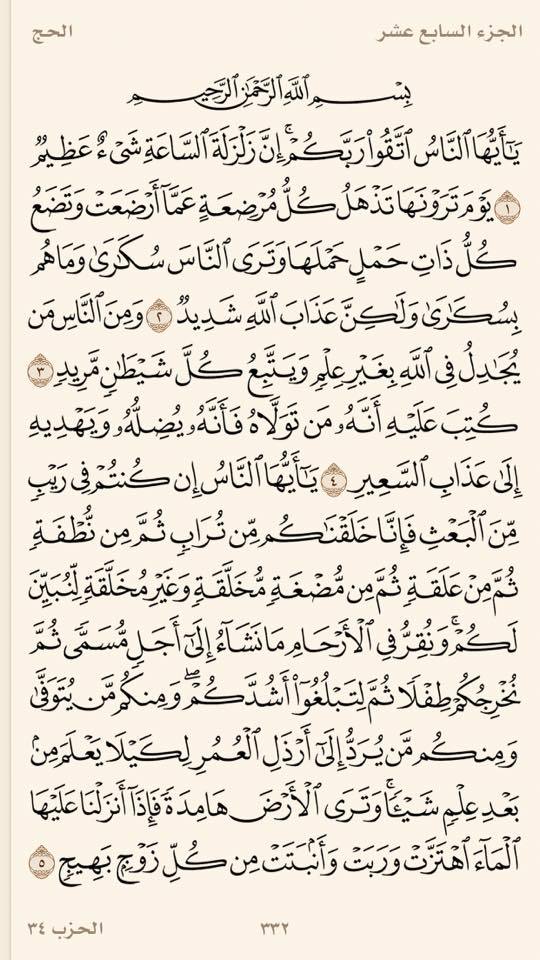 الجزء السابع عشر
الحج
بِسْمِ ٱللَّهِ ٱلرَّحْمَٰنِ ٱلرَّحِيمِ
يَٰٓأَيُّهَا ٱلنَّاسُ ٱتَّقُوا۟ رَبَّكُمْ ۚ إِنَّ زَلْزَلَةَ ٱلسَّاعَةِ شَىْءٌ عَظِيمٌ
١ يَوْمَ تَرَوْنَهَا تَذْهَلُ كُلُّ مُرْضِعَةٍ عَمَّآ أَرْضَعَتْ وَتَضَعُ
كُلُّ ذَاتِ حَمْلٍ حَمْلَهَا وَتَرَى ٱلنَّاسَ سُكَٰرَىٰ وَمَا هُم
بِسُكَٰرَىٰ وَلَٰكِنَّ عَذَابَ ٱللَّهِ شَدِيدٌ ٢ وَمِنَ ٱلنَّاسِ مَن
يُجَٰدِلُ فِى ٱللَّهِ بِغَيْرِ عِلْمٍ وَيَتَّبِعُ كُلَّ شَيْطَٰنٍ مَّرِيدٍ ٣
كُتِبَ عَلَيْهِ أَنَّهُۥ مَن تَوَلَّاهُ فَأَنَّهُۥ يُضِلُّهُۥ وَيَهْدِيهِ
إِلَىٰ عَذَابِ ٱلسَّعِيرِ ٤ يَٰٓأَيُّهَا ٱلنَّاسُ إِن كُنتُمْ فِى رَيْبٍ
مِّنَ ٱلْبَعْثِ فَإِنَّا خَلَقْنَٰكُم مِّن تُرَابٍ ثُمَّ مِن نُّطْفَةٍ
ثُمَّ مِنْ عَلَقَةٍ ثُمَّ مِن مُّضْغَةٍ مُّخَلَّقَةٍ وَغَيْرِ مُخَلَّقَةٍ لِّنُبَيِّنَ
لَكُمْ ۚ وَنُقِرُّ فِى ٱلْأَرْحَامِ مَا نَشَآءُ إِلَىٰٓ أَجَلٍ مُّسَمًّى ثُمَّ
نُخْرِجُكُمْ طِفْلًا ثُمَّ لِتَبْلُغُوٓا۟ أَشُدَّكُمْ ۖ وَمِنكُم مَّن يُتَوَفَّىٰ
وَمِنكُم مَّن يُرَدُّ إِلَىٰٓ أَرْذَلِ ٱلْعُمُرِ لِكَيْلَا يَعْلَمَ مِنۢ
بَعْدِ عِلْمٍ شَيْـًٔا ۚ وَتَرَى ٱلْأَرْضَ هَامِدَةً فَإِذَآ أَنزَلْنَا عَلَيْهَا
ٱلْمَآءَ ٱهْتَزَّتْ وَرَبَتْ وَأَنۢبَتَتْ مِن كُلِّ زَوْجٍۭ بَهِيجٍ ٥
٣٣٢
الحزب ٣٤